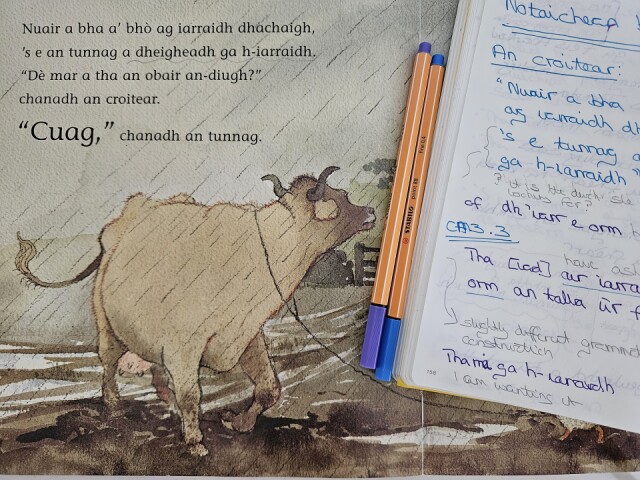 Nuair a bha a' bhò ag iarraidh dhachaigh,
's e an tunnag a dheigheadh ga h-iarraidh.
"Dè mar a tha an obair an-diugh?"
chanadh an croitear.
"Cuag," chanadh an tunnag.
STABILO
Notaichean
An croitear:
"Nuair a bha
ag iarraidh dh
's e tunnag a
ga h-iarraidh"
? it is the duck she
of dh'iarr e orm
3.3
have ask
Tha [iad] air iarra
orm an talla ùr f
slightly different gramma
construction
Tha mi ga h-iarraidh
I am wanting it